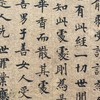 有此經一切世
知此處則為是
香而散其處
子善女人受
先世罪業